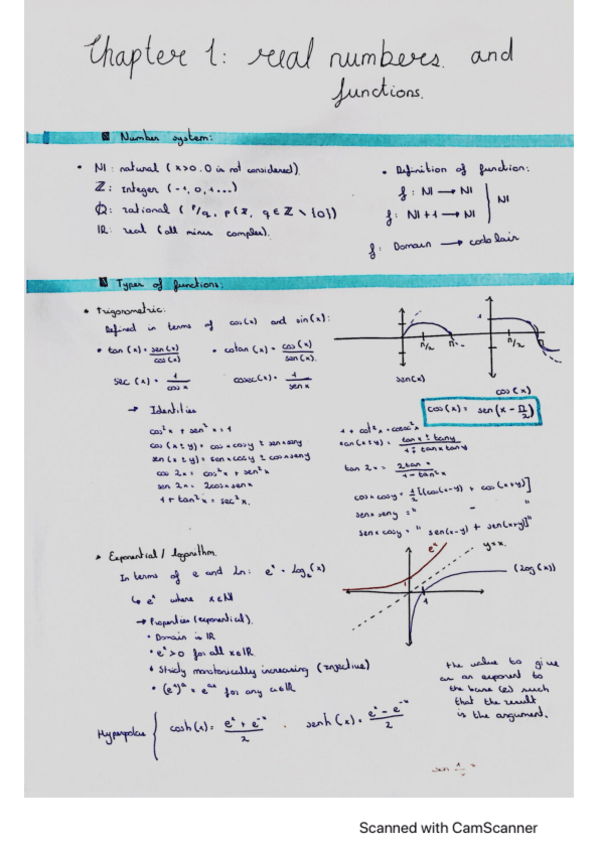 Chapter 1: real numbers. and
functions.
Number system:
• N: natural (x>0, 0 is not considered).
Z: Integer (-1, 0, 1...)
Q: rational (p/q, p∈Z, q∈Z \ {0})
R: real (all minus complex).
• Definition of function:
f: N → N
f: N+1 → N | N
f: Domain →
Types of functions:
• Trigonometric:
Defined in terms of cos(x) and sin(x):
• tan(x) = sen(x)/cos(x) • cotan(x) = cos(x)/sen(x).
sec(x) = 1/cos x cosec(x) = 1/sen x
π/2 π
sen(x)
1
π/2
cos(x)
cos(x) = sen(x - π/2)
→ Identities
cos²x + sen²x = 1
cos(x±y) = cosx cosy ± senx seny
sen(x±y) = senx cosy ± cosx seny
cos 2x = cos²x + sen²x
sen 2x = 2cosx senx
1 + tan²x = sec²x.
1 + cot²x = cosec²x
tan(x±y) = tanx ± tany / 1 ∓ tanx tany
tan 2x = 2tanx / 1 - tan²x
cosx cosy = 1/2 [(cos(x-y) + cos(x+y)]
senx seny = " "
senx cosy = " sen(x-y) + sen(x+y)]"
• Exponential / logarithm.
In terms of e and ln: eˣ = Log₂(x)
↳ eˣ where x∈N
→ Properties (exponential).
• Domain is R
• eˣ>0 for all x∈R
• Stricly monotonically increasing (injective)
• (eˣ)ᵃ = eᵃˣ for any a∈R
eˣ
y=x.
(Log(x))
1
1
the value to give
as an exponent to
the base (e) such
that the result
is the argument.
cosh(x) = eˣ + e⁻ˣ / 2 . senh(x) = eˣ - e⁻ˣ / 2
Scanned with CamScanner